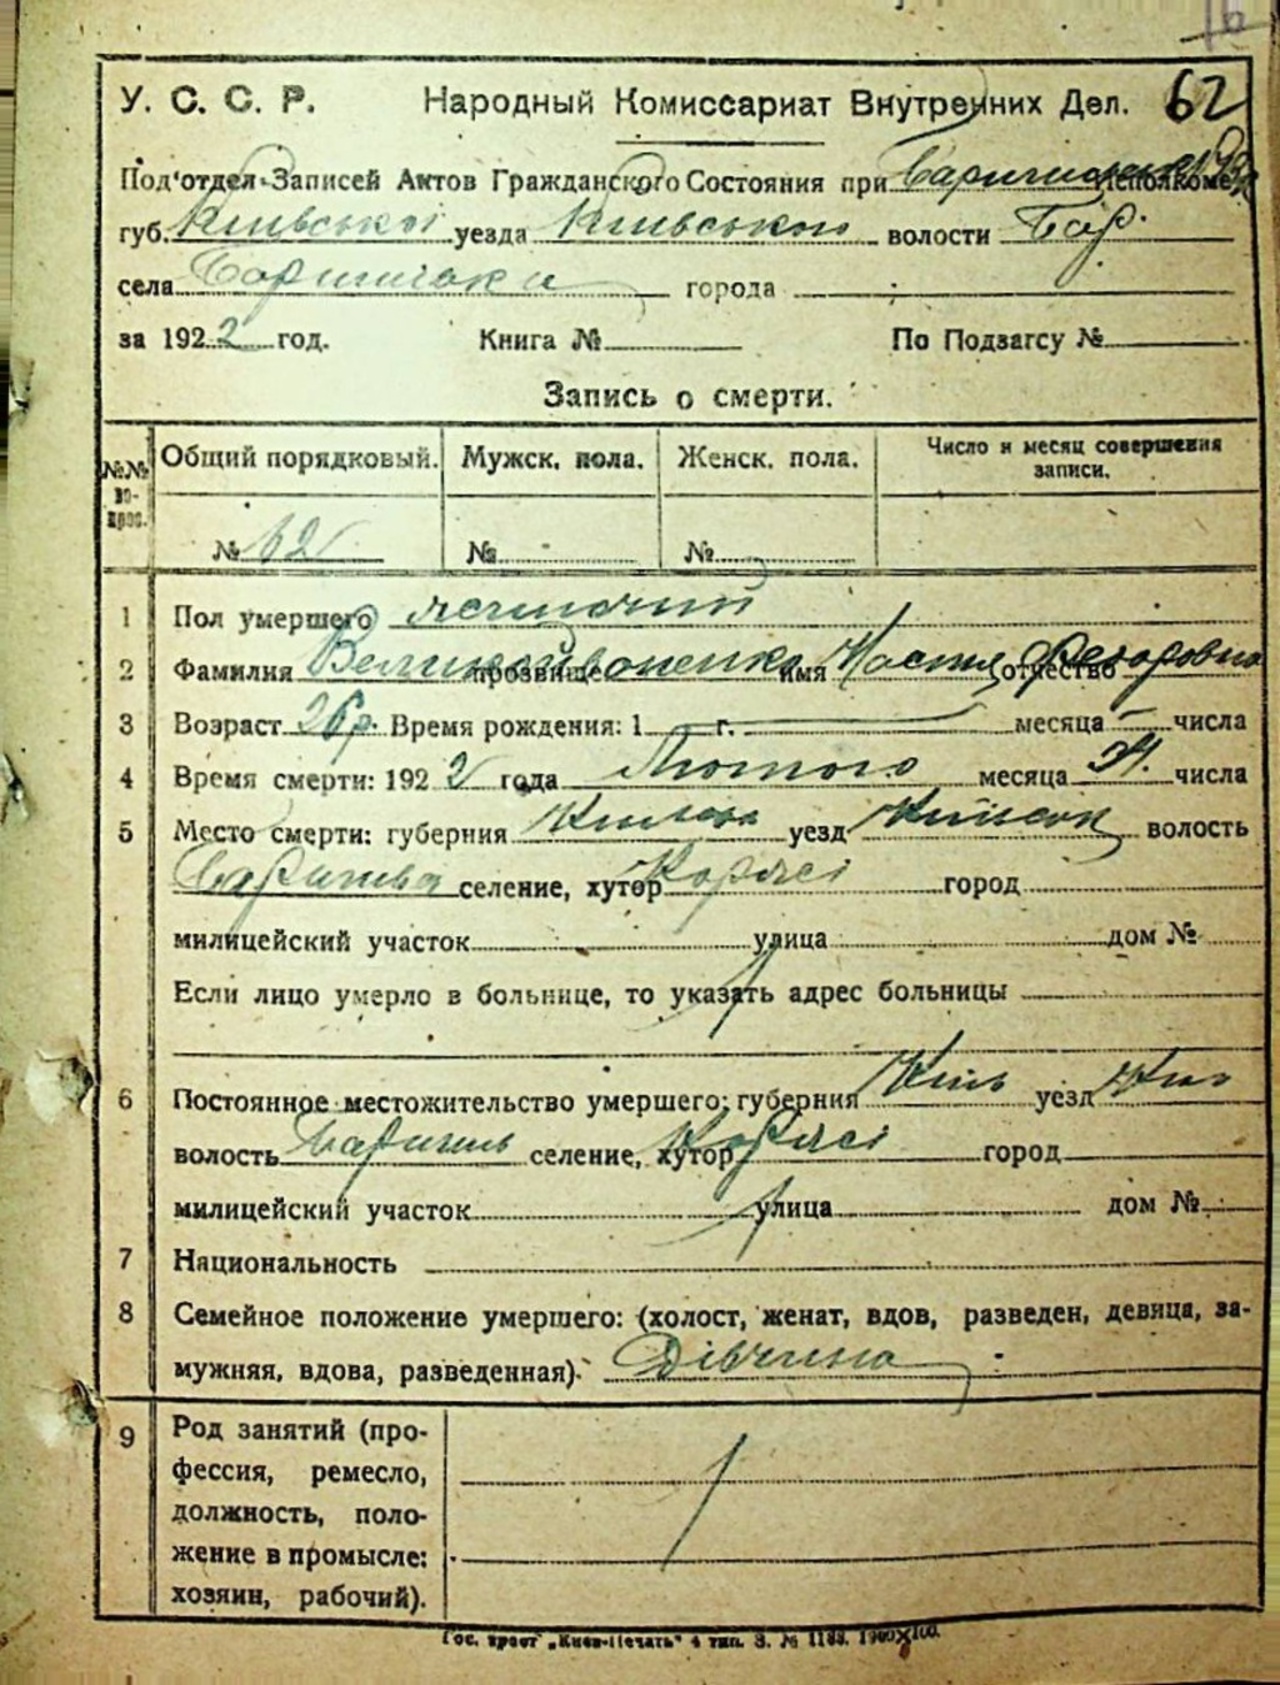 62
У. С. С. Р. Народный Комиссариат Внутренних Дел.
Под'отдел Записей Актов Гражданского Состояния при Исполкоме
губ. Київської уезда Київського волости Бар.
села города
за 1922 год. Книга № По Подзагсу №
Запись о смерти.
№№ вопрос. Общий порядковый. Мужск. пола. Женск. пола. Число и месяц совершения записи.
№ 62 № №
1 Пол умершего жіночий
2 Фамилия прозвище имя Настя отчество Федоровна
3 Возраст 26 р. Время рождения: 1 г. — месяца — числа
4 Время смерти: 1922 года Лютого месяца числа
5 Место смерти: губерния уезд волость
селение, хутор Коржі город
милицейский участок улица дом №
Если лицо умерло в больнице, то указать адрес больницы
6 Постоянное местожительство умершего: губерния Київ уезд Київ
волость Баришів селение, хутор Коржі город
милицейский участок улица дом №
7 Национальность
8 Семейное положение умершего: (холост, женат, вдов, разведен, девица, за-
мужняя, вдова, разведенная). Дівчина
9 Род занятий (про-
фессия, ремесло,
должность, поло-
жение в промысле:
хозяин, рабочий).
Гос. трест „Киев-Печать" 4 тип. З. № 1183.